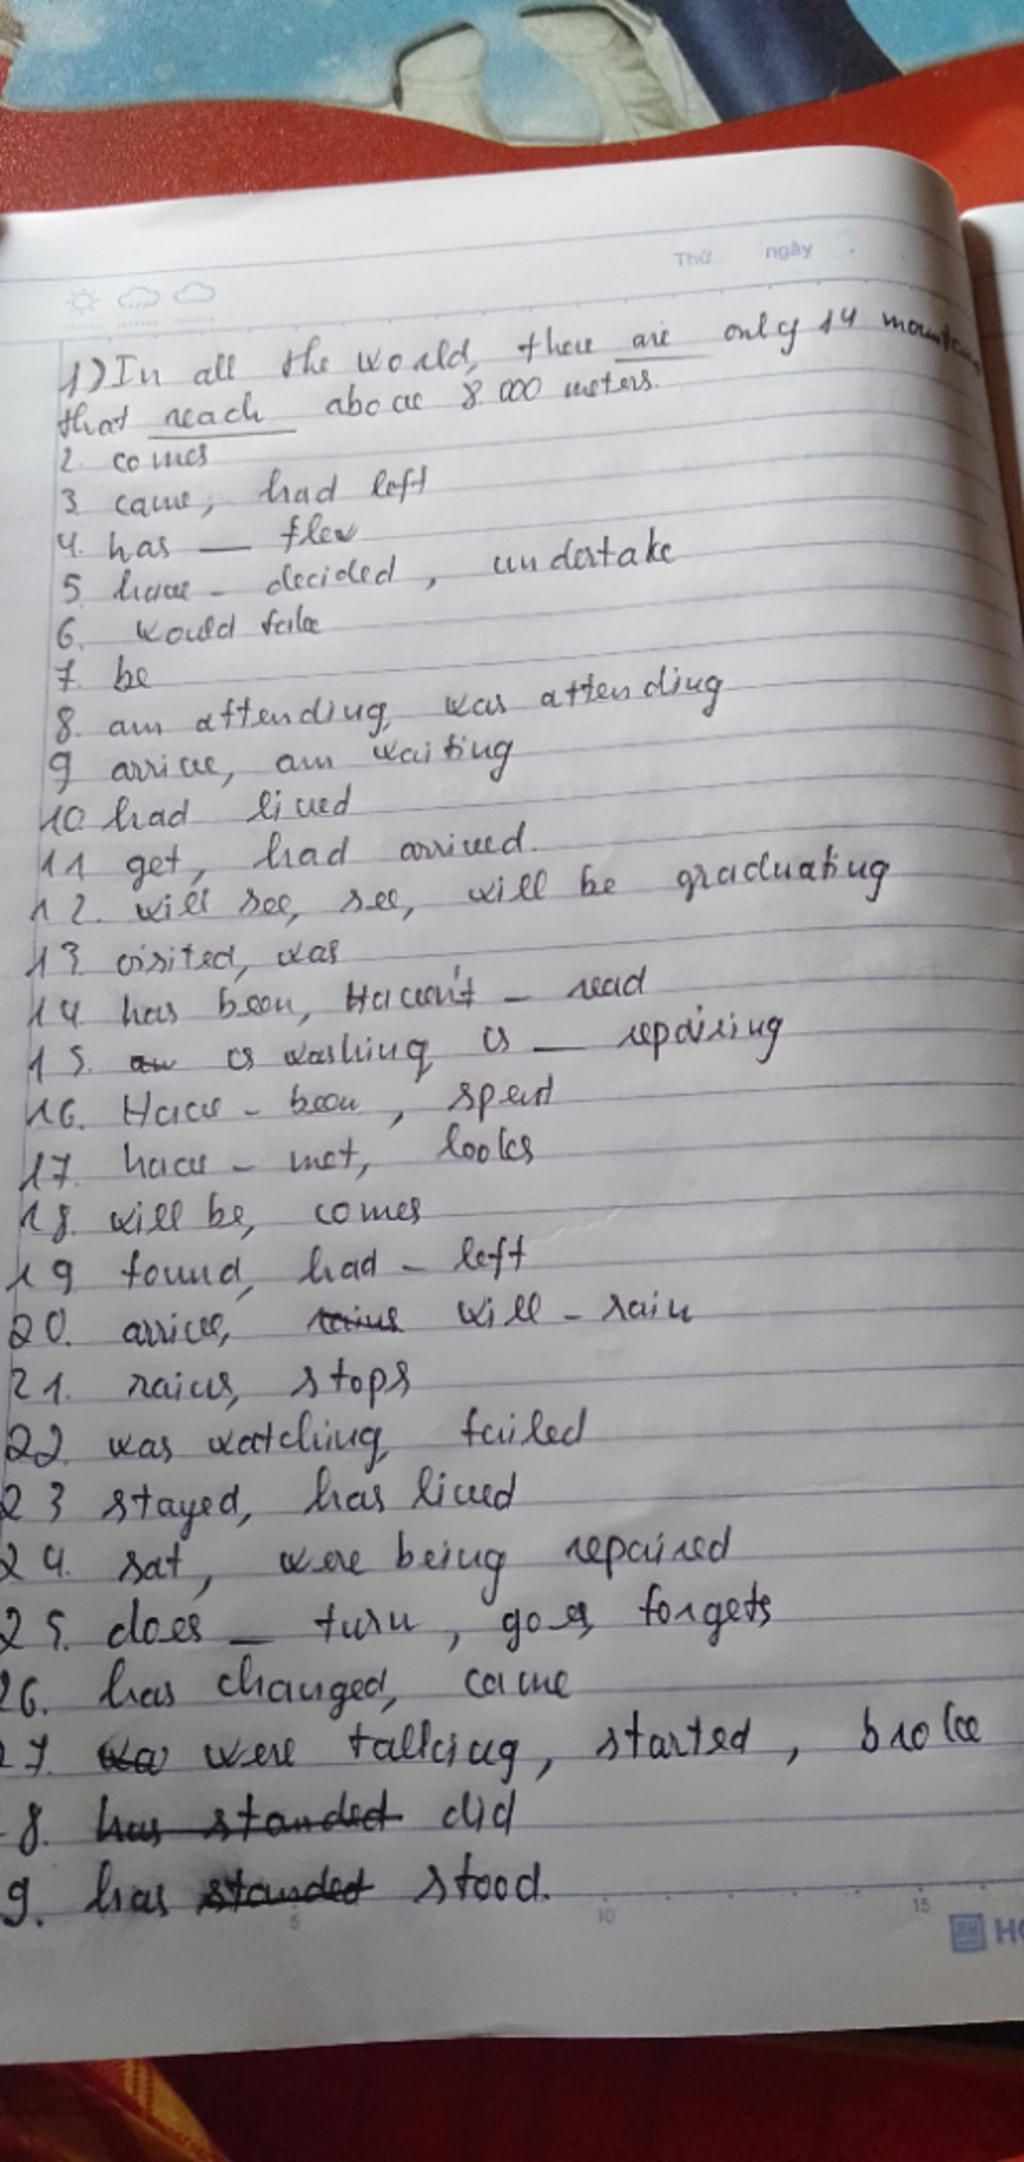 Thứ ngày
1) In all the world, there are only 14 mountains
that reach above 8.000 meters.
2. comes
3. came, had left
4. has — flew
5. have - decided, undertake
6. would take
7. be
8. am attending, was attending
9 arrive, am waiting
10. had lived
11 get, had arrived.
12. will see, see, will be graduating
13. visited, was
14. has been, Haven't - read
15. is washing, is — repairing
16. Have - been, spent
17. have - met, looks
18. will be, comes
19 found, had - left
20. arrive, will - rain
21. rains, stops
22. was watching, failed
23 stayed, has lived
24. sat, were being repaired
25. does — turn, goes, forgets
26. has changed, came
27. were talking, started, broke
8. has standed did
9. has standed stood.
5 10 15